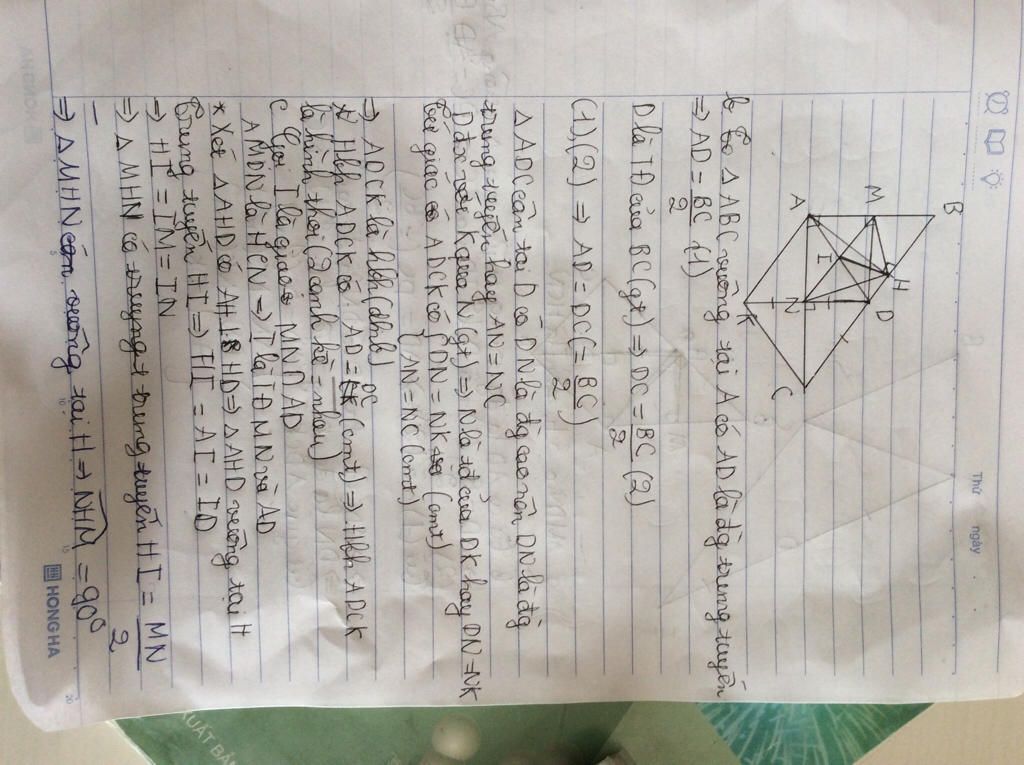 Thứ
ngày
B
M
H
A
I
D
N
K
C
b Có △ ABC vuông tại A có AD là đg trung tuyến
⇒ AD = BC/2 (1)
D là TĐ của BC (gt) ⇒ DC = BC/2 (2)
(1),(2) ⇒ AD = DC (= BC/2)
△ ADC cân tại D có DN là đg cao nên DN là đg
trung tuyến hay AN = NC
D đx với K qua N (gt) ⇒ N là tđ của DK hay DN = NK
Tứ giác có ADCK có { DN = NK (cmt)
{ AN = NC (cmt)
⇒ ADCK là hbh (dhnb)
* Hbh ADCK có AD = DC (cmt) ⇒ Hbh ADCK
là hình thoi (2 cạnh kề = nhau)
c Gọi I là giao MN ∩ AD
AMDN là HCN ⇒ I là TĐ MN và AD
* Xét △ AHD có AH ⊥ HD ⇒ △ AHD vuông tại H
trung tuyến HI ⇒ HI = AI = ID
→ HI = IM = IN
⇒ △ MHN có trung tuyến HI = MN/2
⇒ △ MHN vuông tại H ⇒ NHM = 90°
HONG HA
5
10
15
20
XUẤT BẢN